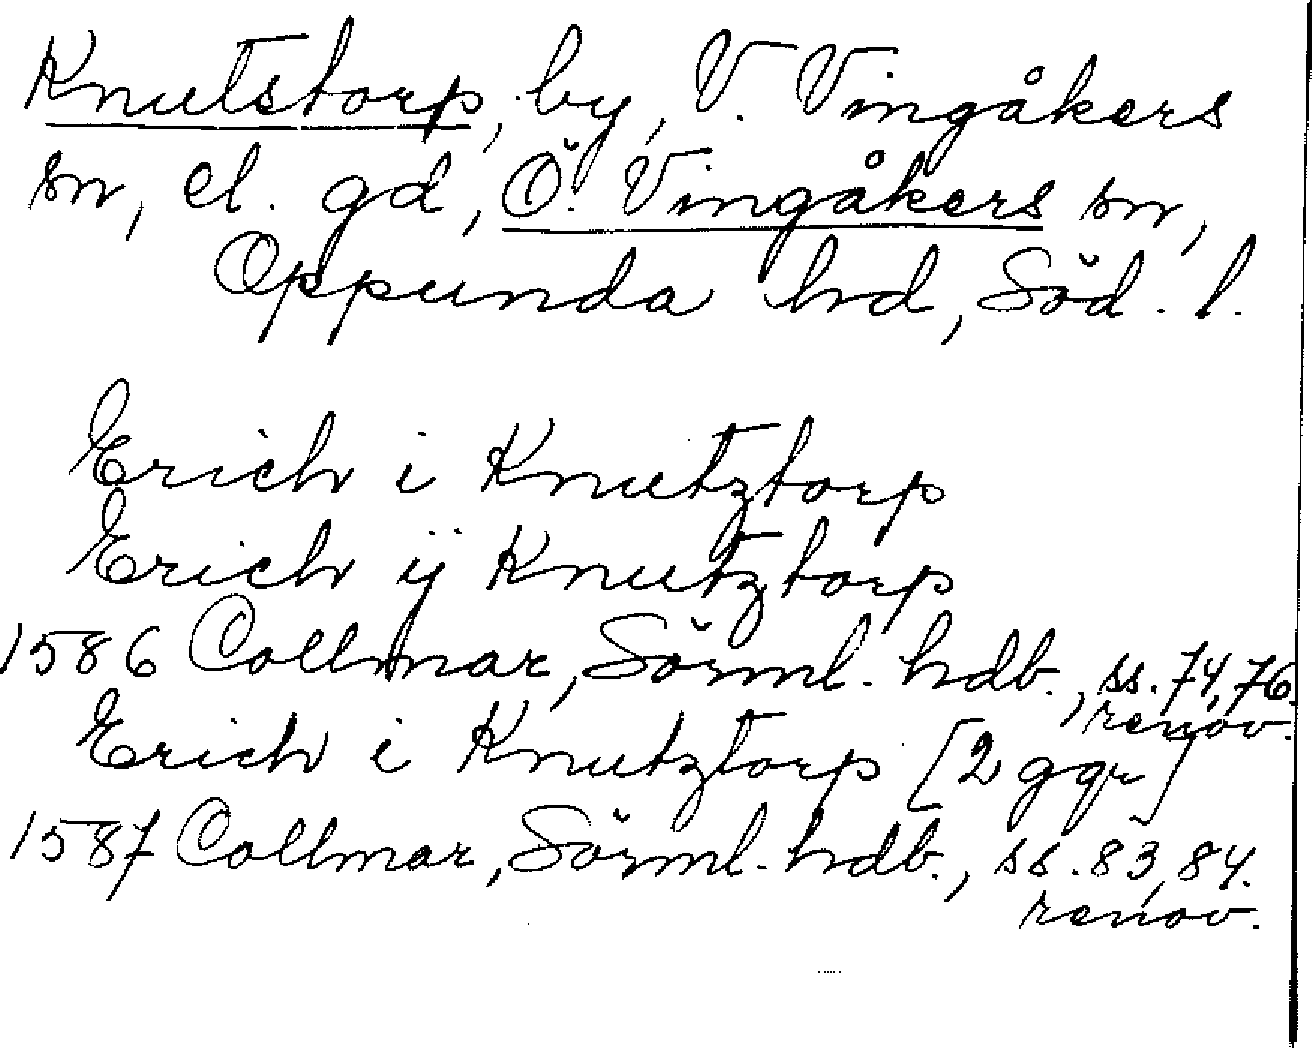 Knutstorp, by, V. Vingåkers
sn, el. gd, Ö. Vingåkers sn,
Oppunda hd, Söd. l.
Erich i Knutztorp
Erich ij Knutztorp
1586 Collmar, Sörml. hdb., ss. 74, 76.
renov.
Erich i Knutztorp [2 ggr]
1587 Collmar, Sörml. hdb., ss. 83, 84.
renov.